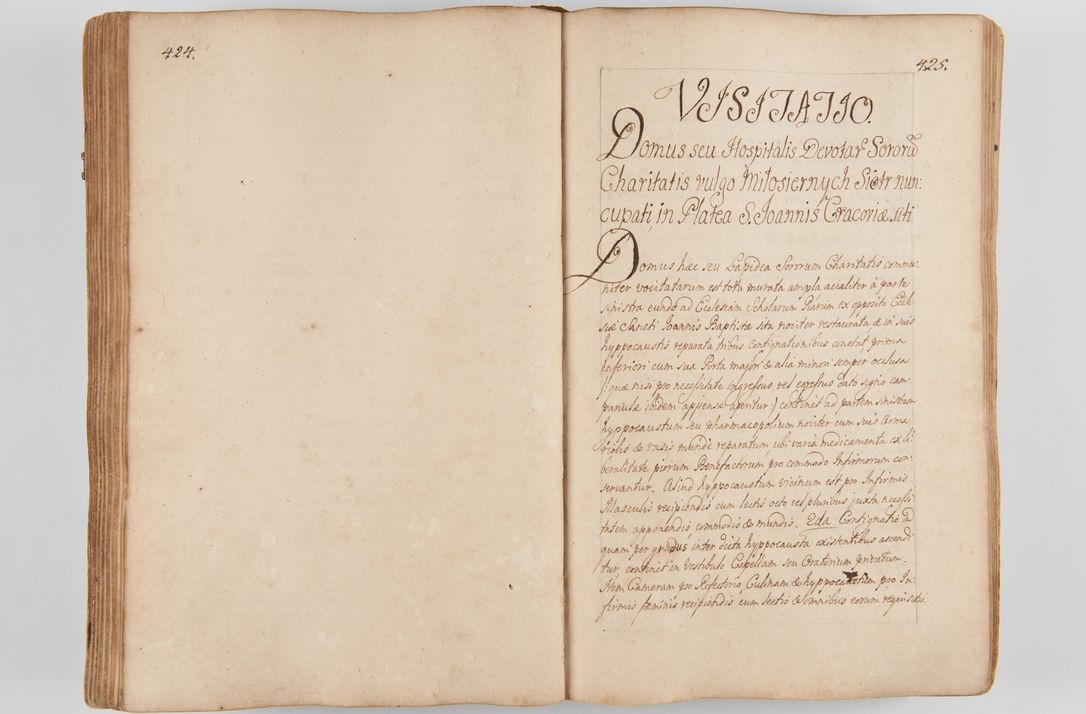 424.
425.
VISITATIO.
Domus seu Hospitalis Devotar Sororū
Charitatis vulgo Miłosiernych Siotr nun:
cupati, in Platea S. Joannis Cracoviæ siti
Domus hæc seu Lapidea Sororum Charitatis commu:
niter vocitatarum est tota murata ampla acialiter à parte
sinistra eundo ad Ecclesiam Scholarum Piarum ex opposito Eccle
siæ Sancti Joannis Baptistæ sita noviter restaurata, & in suis
hyppocaustis reparata tribus contignationibus constat, prima
inferiori cum sua Porta majori & alia minori semper occlusa
(quæ nisi pro necessitate ingressus vel egressus dato signo cam
panulæ ibidem appensæ aperitur) continet ad partem sinistram
hyppocaustum seu pharmacopolium noviter cum suis Arma:
riolis & vasis munde reparatum, ubi varia medicamenta ex li
beralitate piorum Benefactorum pro commodo Infirmorum con:
servantur. Aliud hyppocaustum vicinum est pro Infirmis
Masculis recipiendis cum lectis octo vel pluribus juxta necessi:
tatem apponendis commodis & mundis. 2da Contignatio ad
quam per gradus inter dicta hyppocausta existentibus ascendi
tur, continet in Vestibulo Capellam seu Oratorium privatum.
Item Cameram pro Refectorio, Culinam & hyppocaustum pro In:
firmis fæminis recipiendis cum lectis & omnibus eorum requisitis.